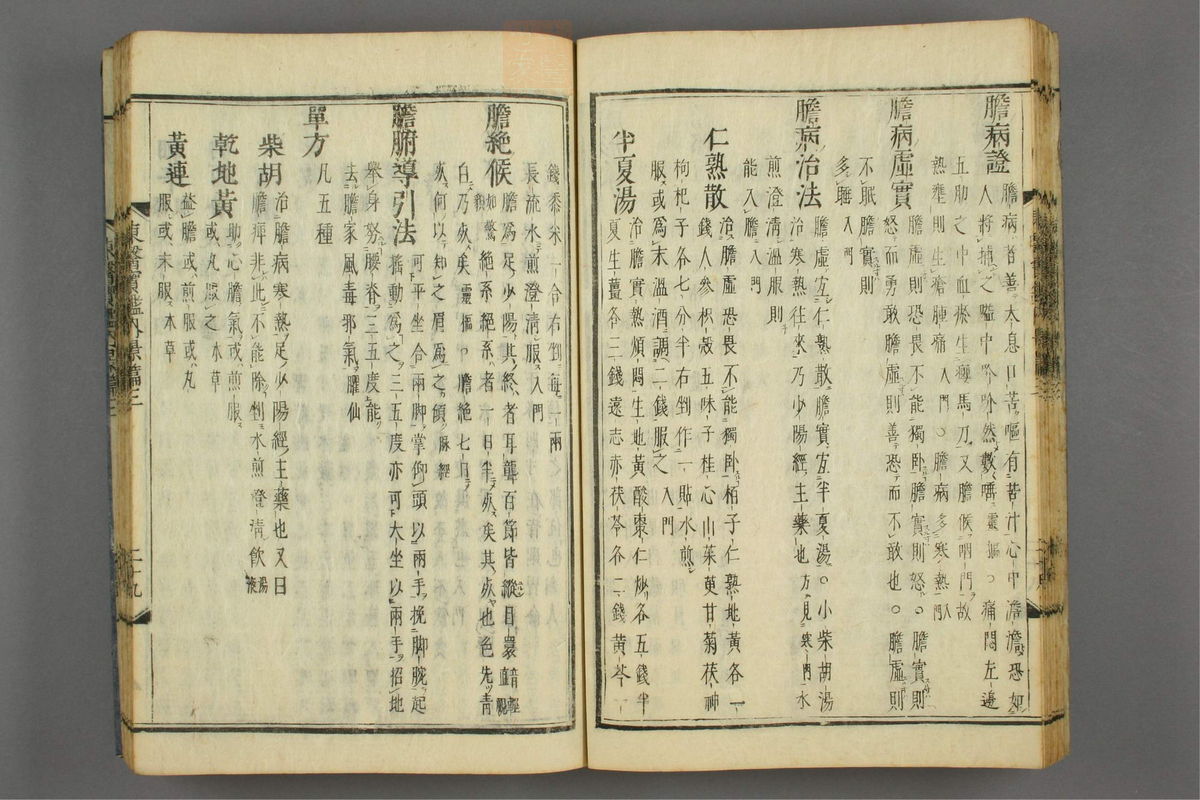 膽病證
膽病者善大息口苦嘔有苦汁心中澹澹恐如
人將捕之嗌中吤吤然數唾靈樞○痛悶左邊
五肋之中血瘀生癭馬刀又膽候咽門故
熱壅則生瘡腫痛入門○膽病多寒熱入門
膽病虛實
膽虛則恐畏不能獨卧膽實則怒○膽實則
怒而勇敢膽虛則善恐而不敢也○膽虛則
不眠膽實則
多睡入門
膽病治法
膽虛宜仁熟散膽實宜半夏湯○小柴胡湯
治寒熱往來乃少陽經主藥也方見寒門水
煎澄清溫服則
能入膽入門
仁熟散
治膽虛恐畏不能獨卧柏子仁熟地黃各一
錢人參枳殼五味子桂心山茱萸甘菊茯神
枸杞子各七分半右剉作一貼水煎
服或爲末溫酒調二錢服之入門
半夏湯
治膽實熱煩悶生地黃酸棗仁炒各五錢半
夏生薑各三錢遠志赤茯苓各二錢黃芩一
錢黍米一合右剉每一兩
長流水煎澄清服入門
膽絶候
膽爲足少陽其終者耳聾百節皆縱目瞏
絶系絶系者一日半死矣其死也色先靑
白乃死矣靈樞○膽絶七日
死何以知之眉爲之傾脉經
膽腑導引法
可平坐合兩脚掌仰頭以兩手挽脚腕起
搖動爲之三五度亦可大坐以兩手招地
擧身努腰脊三五度能
去膽家風毒邪氣臞仙
單方
凡五種
柴胡
治膽病寒熱足少陽經主藥也又曰
膽痺非此不能除剉水煎澄淸飮湯液
乾地黃
助心膽氣或煎服
或丸服之本草
黃連
益膽或煎服或丸
服或末服本草
東醫寶鑑內景篇三
二十九